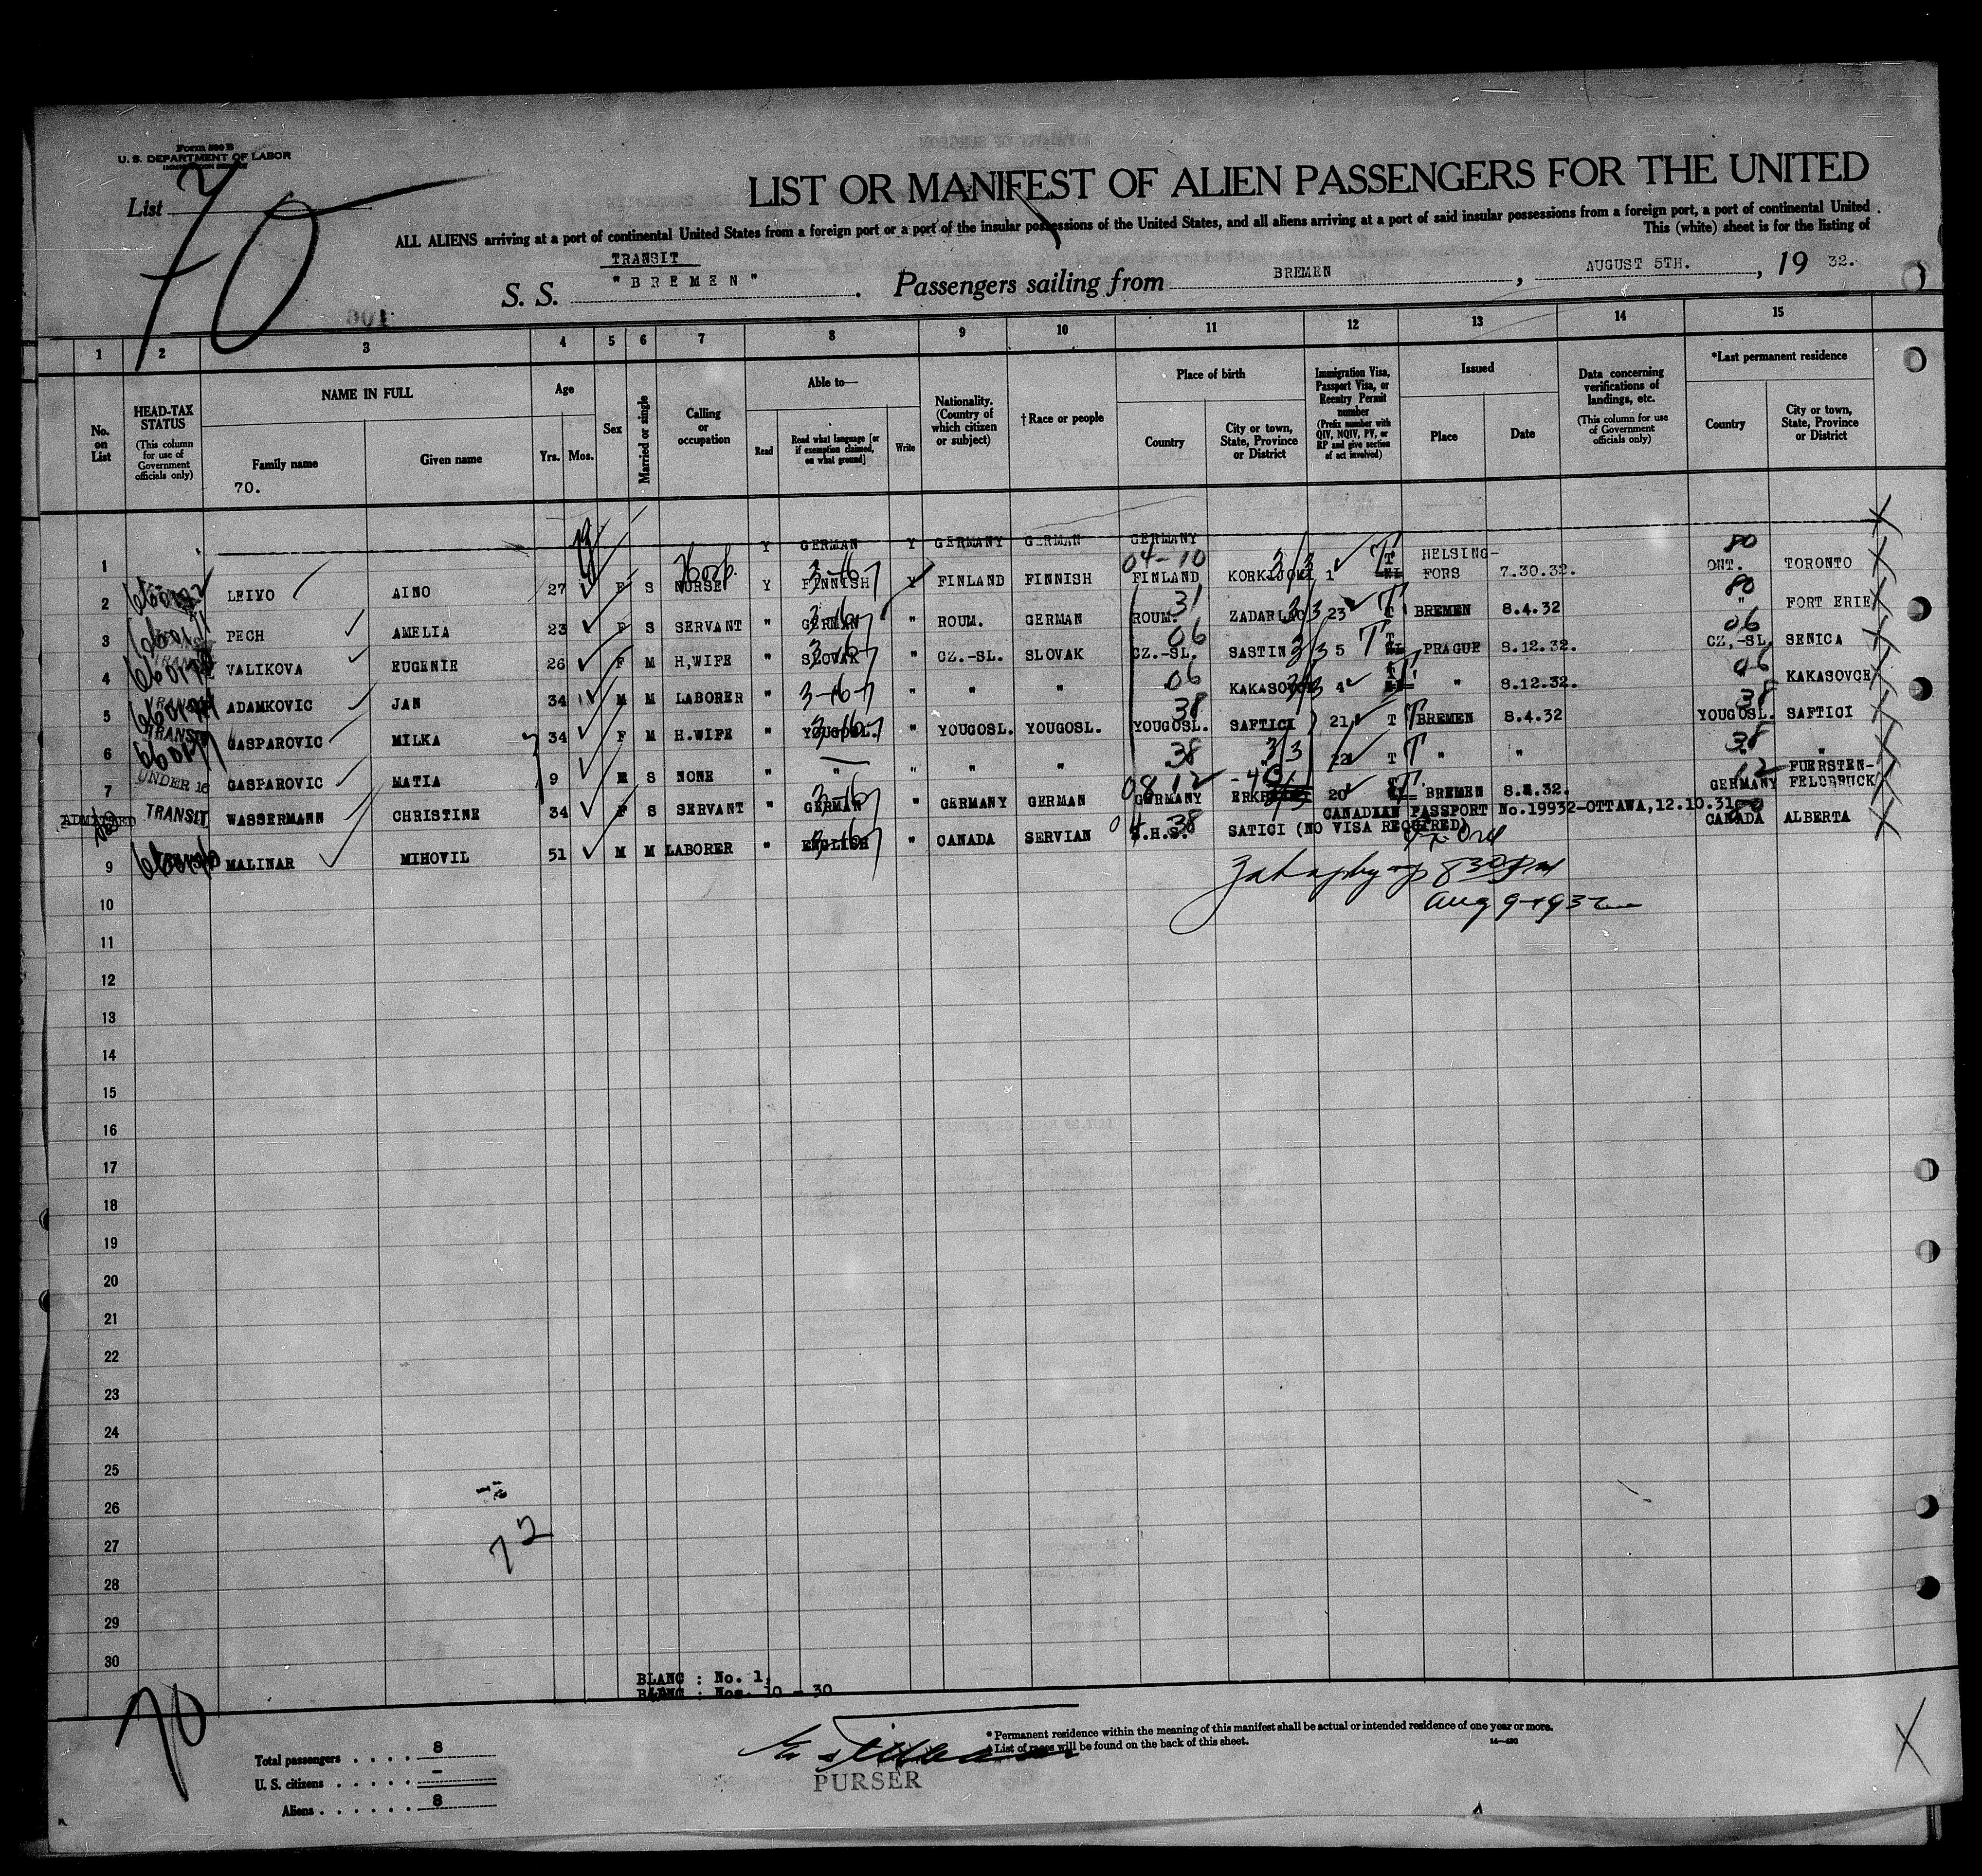 Form 500 B
U. S. DEPARTMENT OF LABOR
IMMIGRATION SERVICE
List 70
LIST OR MANIFEST OF ALIEN PASSENGERS FOR THE UNITED
ALL ALIENS arriving at a port of continental United States from a foreign port or a port of the insular possessions of the United States, and all aliens arriving at a port of said insular possessions from a foreign port, a port of continental United
This (white) sheet is for the listing of
TRANSIT
S. S. "BREMEN" . Passengers sailing from BREMEN , AUGUST 5TH. , 19 32.
1 2 3 4 5 6 7 8 9 10 11 12 13 14 15
No. on List
HEAD-TAX STATUS (This column for use of Government officials only)
NAME IN FULL Family name Given name
70.
Age Yrs. Mos.
Sex
Married or single
Calling or occupation
Able to— Read Read what language [or if exemption claimed, on what ground] Write
Nationality. (Country of which citizen or subject)
†Race or people
Place of birth Country City or town, State, Province or District
Immigration Visa, Passport Visa, or Reentry Permit number (Prefix number with QIV, NQIV, PV, or RP and give section of act involved)
Issued Place Date
Data concerning verifications of landings, etc. (This column for use of Government officials only)
*Last permanent residence Country City or town, State, Province or District
1 Y GERMAN Y GERMANY GERMAN GERMANY
2 LEIVO AINO 27 F S NURSE Y FINNISH Y FINLAND FINNISH FINLAND 1 T HELSING-FORS 7.30.32. ONT. TORONTO
3 PECH AMELIA 23 F S SERVANT " GERMAN " ROUM. GERMAN ROUM. 23 T BREMEN 8.4.32 " FORT ERIE
4 VALIKOVA EUGENIE 26 F M H,WIFE " SLOVAK " CZ.-SL. SLOVAK CZ.-SL. SASTIN 5 T PRAGUE 8.12.32. CZ.-SL. SENICA
5 ADAMKOVIC JAN 34 M M LABORER " " " " 4 " 8.12.32. KAKASOVCE
6 TRANSIT GASPAROVIC MILKA 34 F M H.WIFE " YOUGOSL. " YOUGOSL. YOUGOSL. YOUGOSL. SAFTICI 21 T BREMEN 8.4.32 YOUGOSL. SAFTICI
7 UNDER 16 GASPAROVIC MATIA 9 M S NONE " " " " " 22 T " " "
8 ADMITTED TRANSIT WASSERMANN CHRISTINE 34 F S SERVANT " GERMAN " GERMANY GERMAN GERMANY 20 BREMEN 8.4.32. GERMANY FUERSTEN-FELDBRUCK
CANADIAN PASSPORT No.19932-OTTAWA,12.10.31
9 MALINAR MIHOVIL 51 M M LABORER " ENGLISH " CANADA SERVIAN S.H.S. SATICI (NO VISA REQUIRED) CANADA ALBERTA
830 PM
10 Aug 9-1932
11
12
13
14
15
16
17
18
19
20
21
22
23
24
25
26
27
72
28
29
30
BLANC : No. 1,
BLANC : Nos. 10 - 30
70
* Permanent residence within the meaning of this manifest shall be actual or intended residence of one year or more.
† List of races will be found on the back of this sheet.
PURSER
Total passengers . . . . 8
U. S. citizens . . . . . . -
Aliens . . . . . . 8